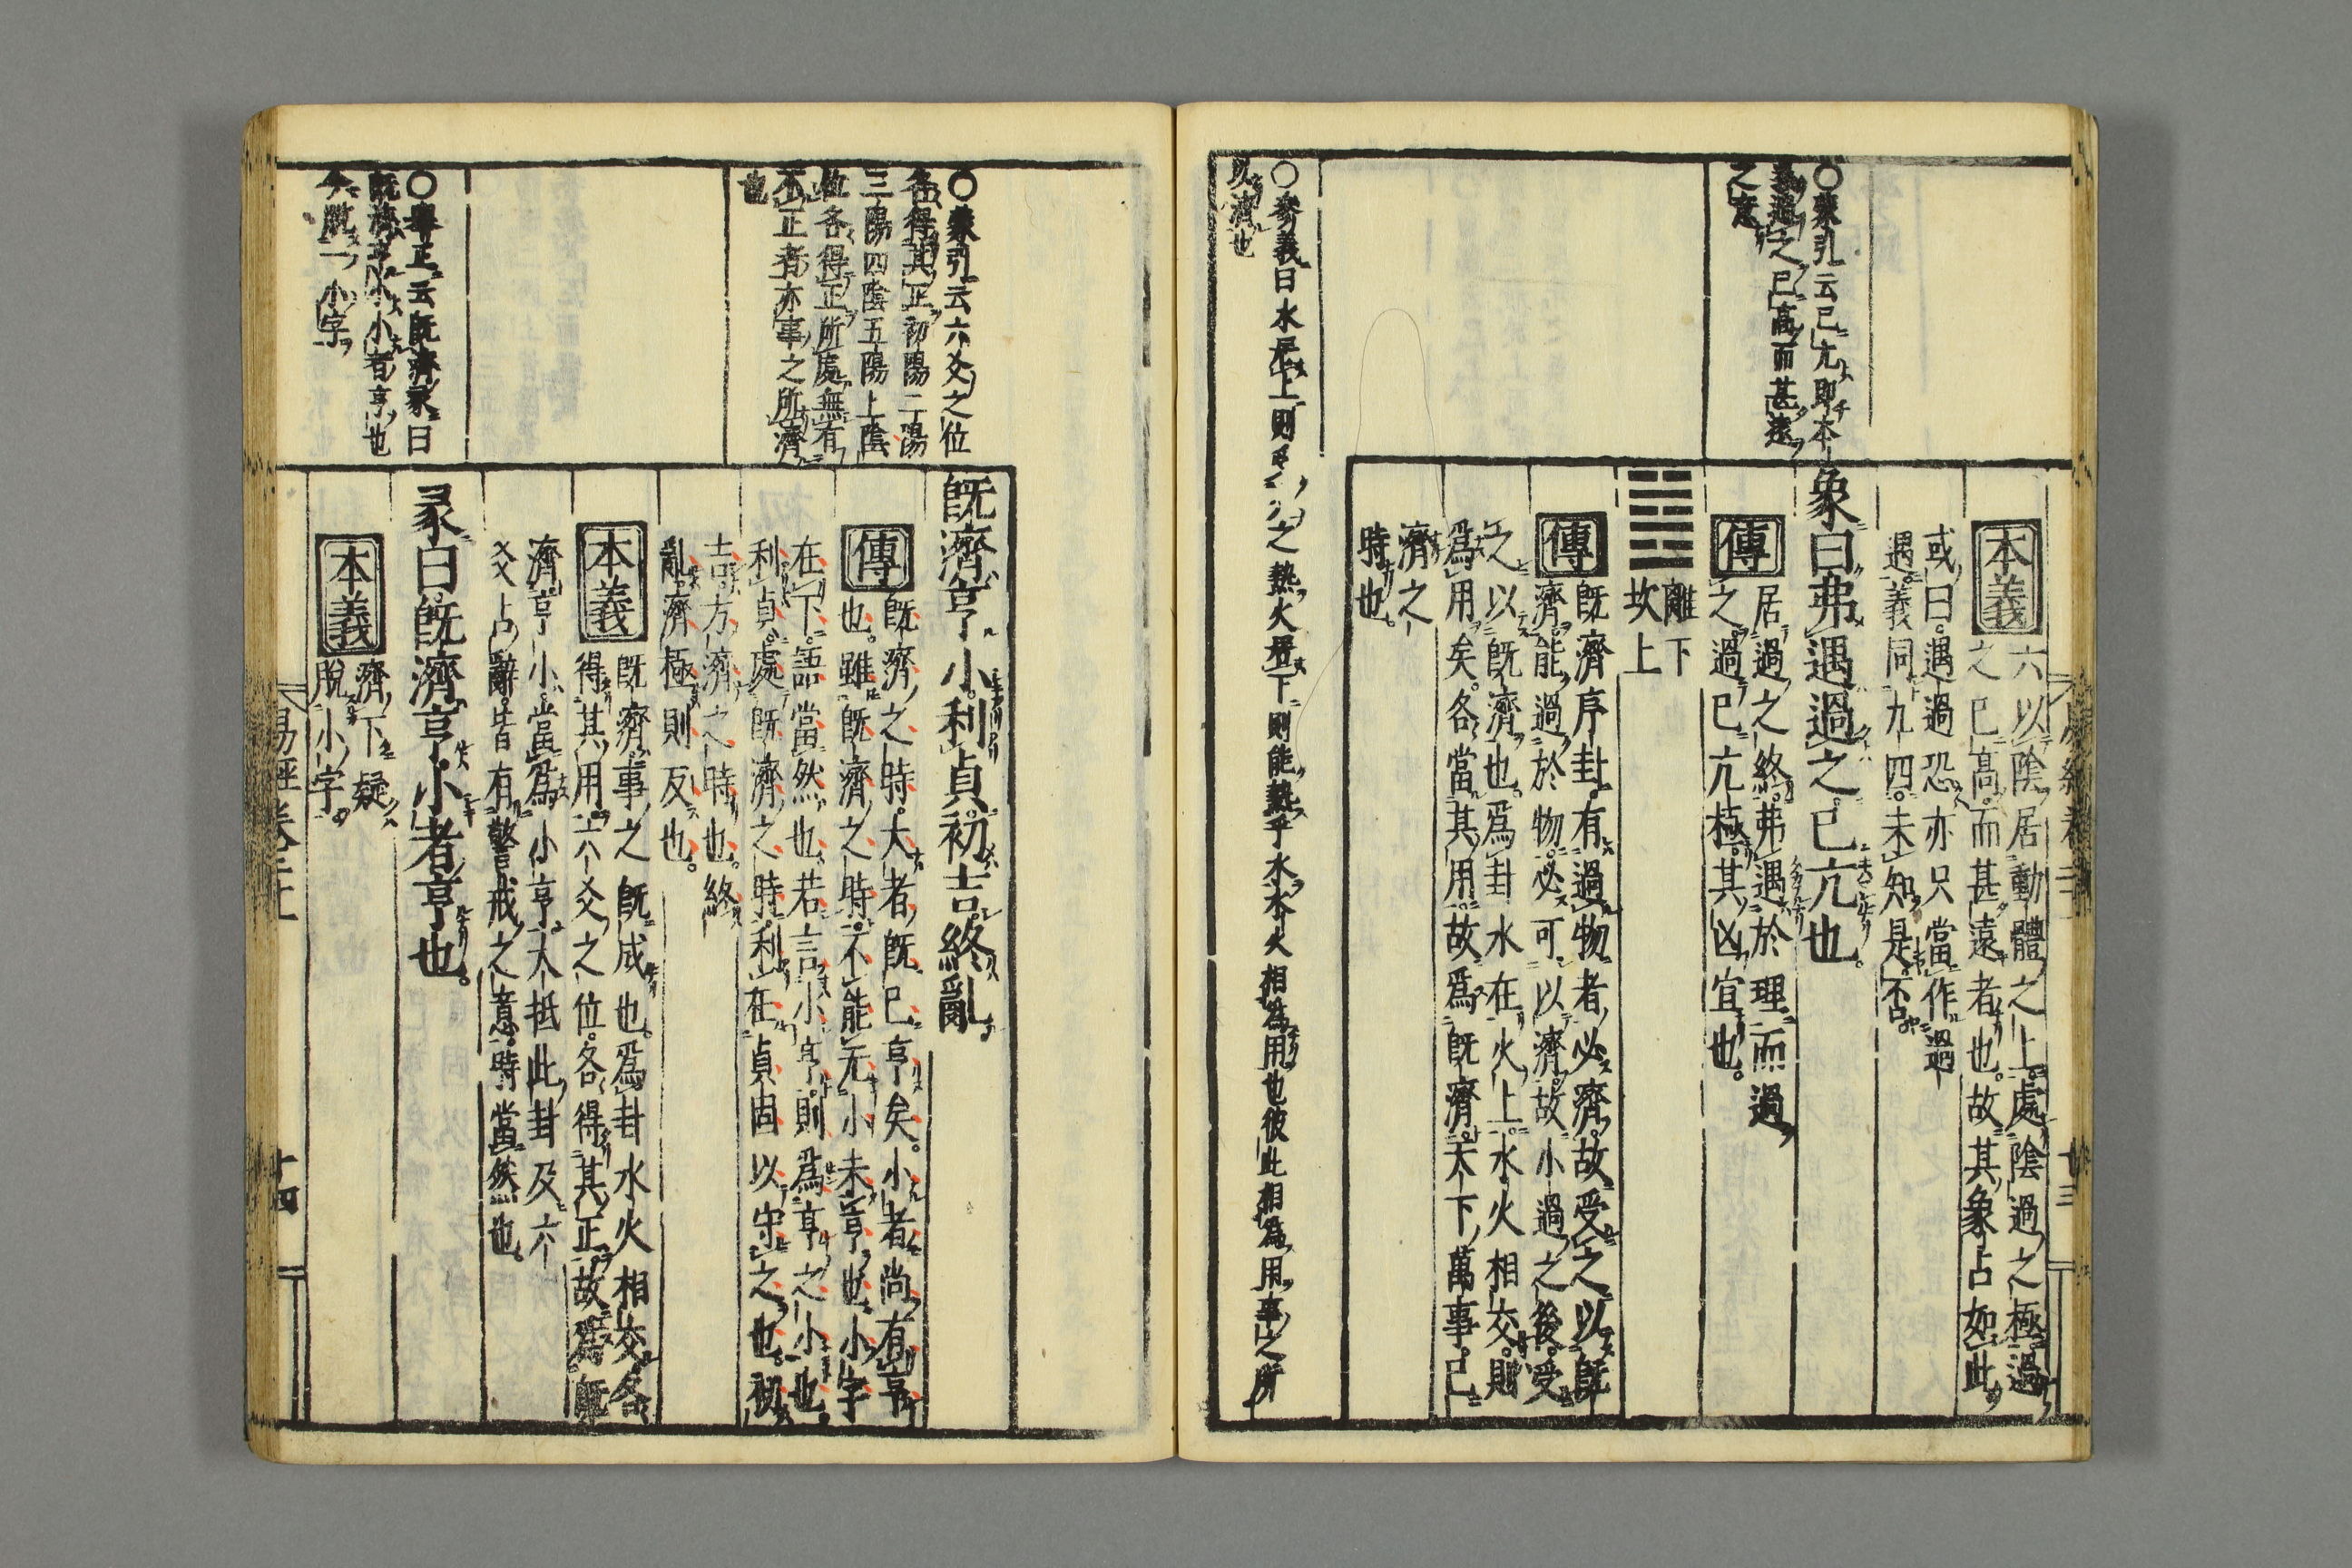 ○蒙引云已亢即本
義過之已高而甚遠
之意
本義
六以陰居動體之上。處陰過之極。過
之已高。而甚遠者也。故其象占如此。
或曰。遇過恐亦只當作過
遇。義同九四。未知是否。
象曰。弗遇過之。已亢也。
傳
居過之終。弗遇於理。而過
之。過已亢極。其凶宜也。
離下
坎上
傳
既濟序卦。有過物者必濟。故受之以既
濟。能過於物。必可以濟。故小過之後。受
之以既濟也。爲卦水在火上。水火相交。則
爲用矣。各當其用。故爲既濟。天下萬事。已
濟之
時也。
○參義曰水居上則之熱火居下則能熱乎水水火相爲用也彼此相爲用事之所
以濟也
易經卷二十
廿三
○蒙引云六爻之位
各得其正初陽二陰
三陽四陰五陽上陰
位各得正所處無有
不正者亦事之所濟
也
既濟。亨。小。利貞。初吉終亂。
傳
既濟之時。大者既已亨矣。小者尚有亨
也。雖既濟之時。不能无小未亨也。小字
在下。語當然也。若言小亨。則爲亨之小也。
利貞。處既濟之時。利在貞固以守之也。初
吉。方濟之時也。終
亂。濟極則反也。
本義
既濟。事之既成也。爲卦水火相交。各
得其用。六爻之位。各得其正。故爲既
濟。亨小。當爲小亨。大抵此卦及六
爻占辭。皆有警戒之意。時當然也。
○舉正云既濟彖曰
既濟亨小小者亨也
今脫一小字
彖曰。既濟亨。小者亨也。
本義
濟下疑
脫小字。
易經卷二十
十四